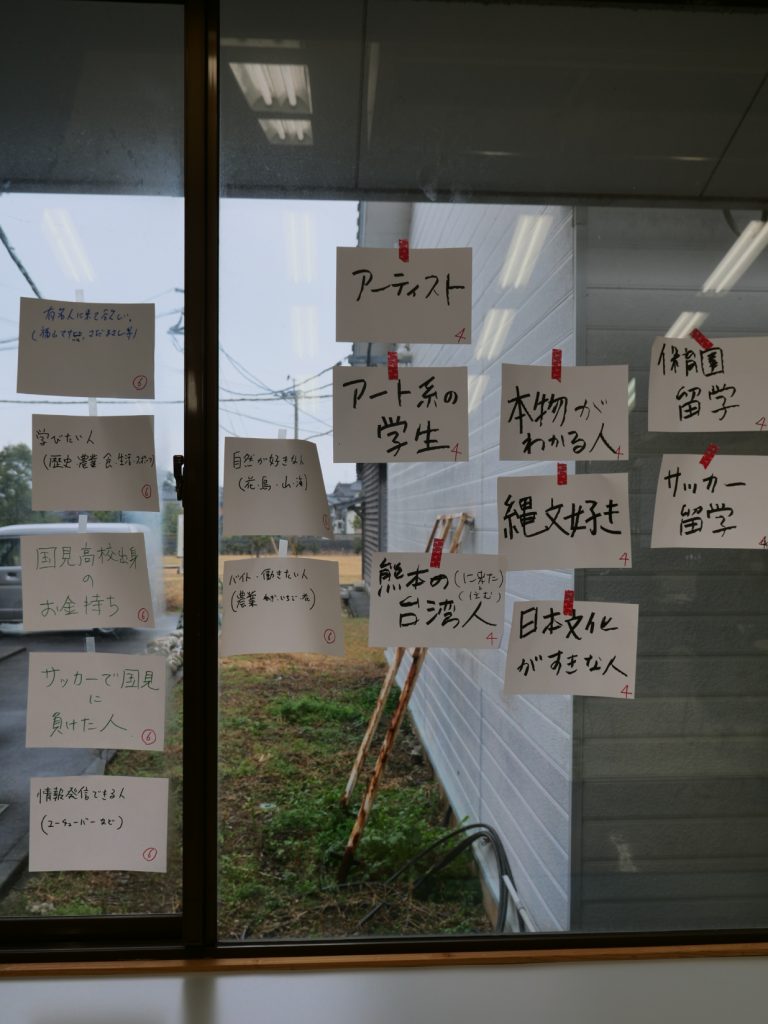 有名人に来て欲しい。
(福山マサ治、さだまさし等)
⑥
学びたい人
(歴史・農業・食・生活・スポーツ)
⑥
国見高校出身
の
お金持ち
⑥
サッカーで国見
に
負けた人
⑥
情報発信できる人
(ユーチューバーなど)
⑥
自然が好きな人
(花・鳥・山・海)
⑥
バイト・働きたい人
(農業 ねぎ・いちご・花)
⑥
アーティスト
4
アート系の
学生
4
熊本の(に来た)
台湾人(ばむ)
4
本物が
わかる人
4
縄文好き
4
日本文化
がすきな人
4
保育園
留学
4
サッカー
留学
4